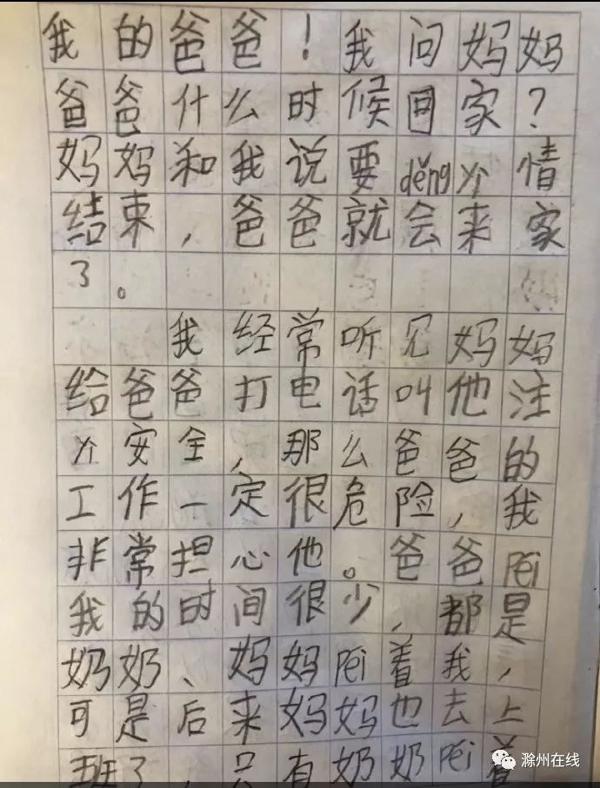 我的爸爸！我问妈妈
爸爸什么时候回家？
妈妈和我说要děngyì情
结束，爸爸就会来家
了。
我经常听见妈妈
给爸爸打电话叫他注
yì安全，那么爸爸的
工作一定很危险，我
非常担心他。爸爸péi
我的时间很少，都是
奶奶、妈妈péi着我，
可是后来妈妈也去上
班了，只有奶奶péi着
滁州在线